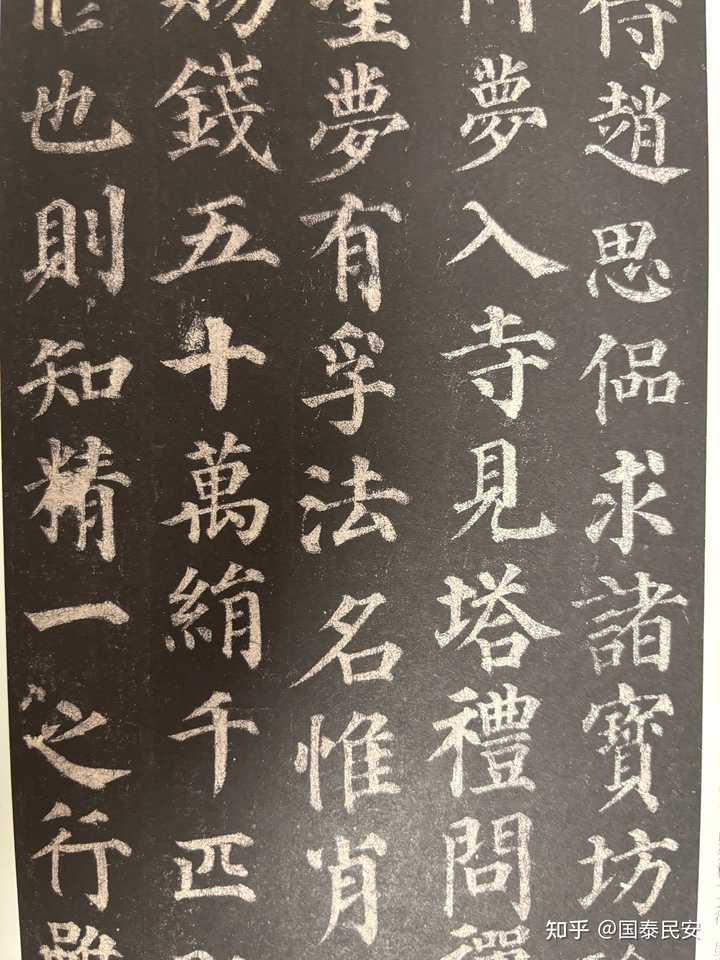 侍趙思偘求諸寶坊
夢入寺見塔禮問禪
聖夢有孚法名惟肖
賜錢五十萬絹千匹
也則知精一之行雖
知乎 @国泰民安